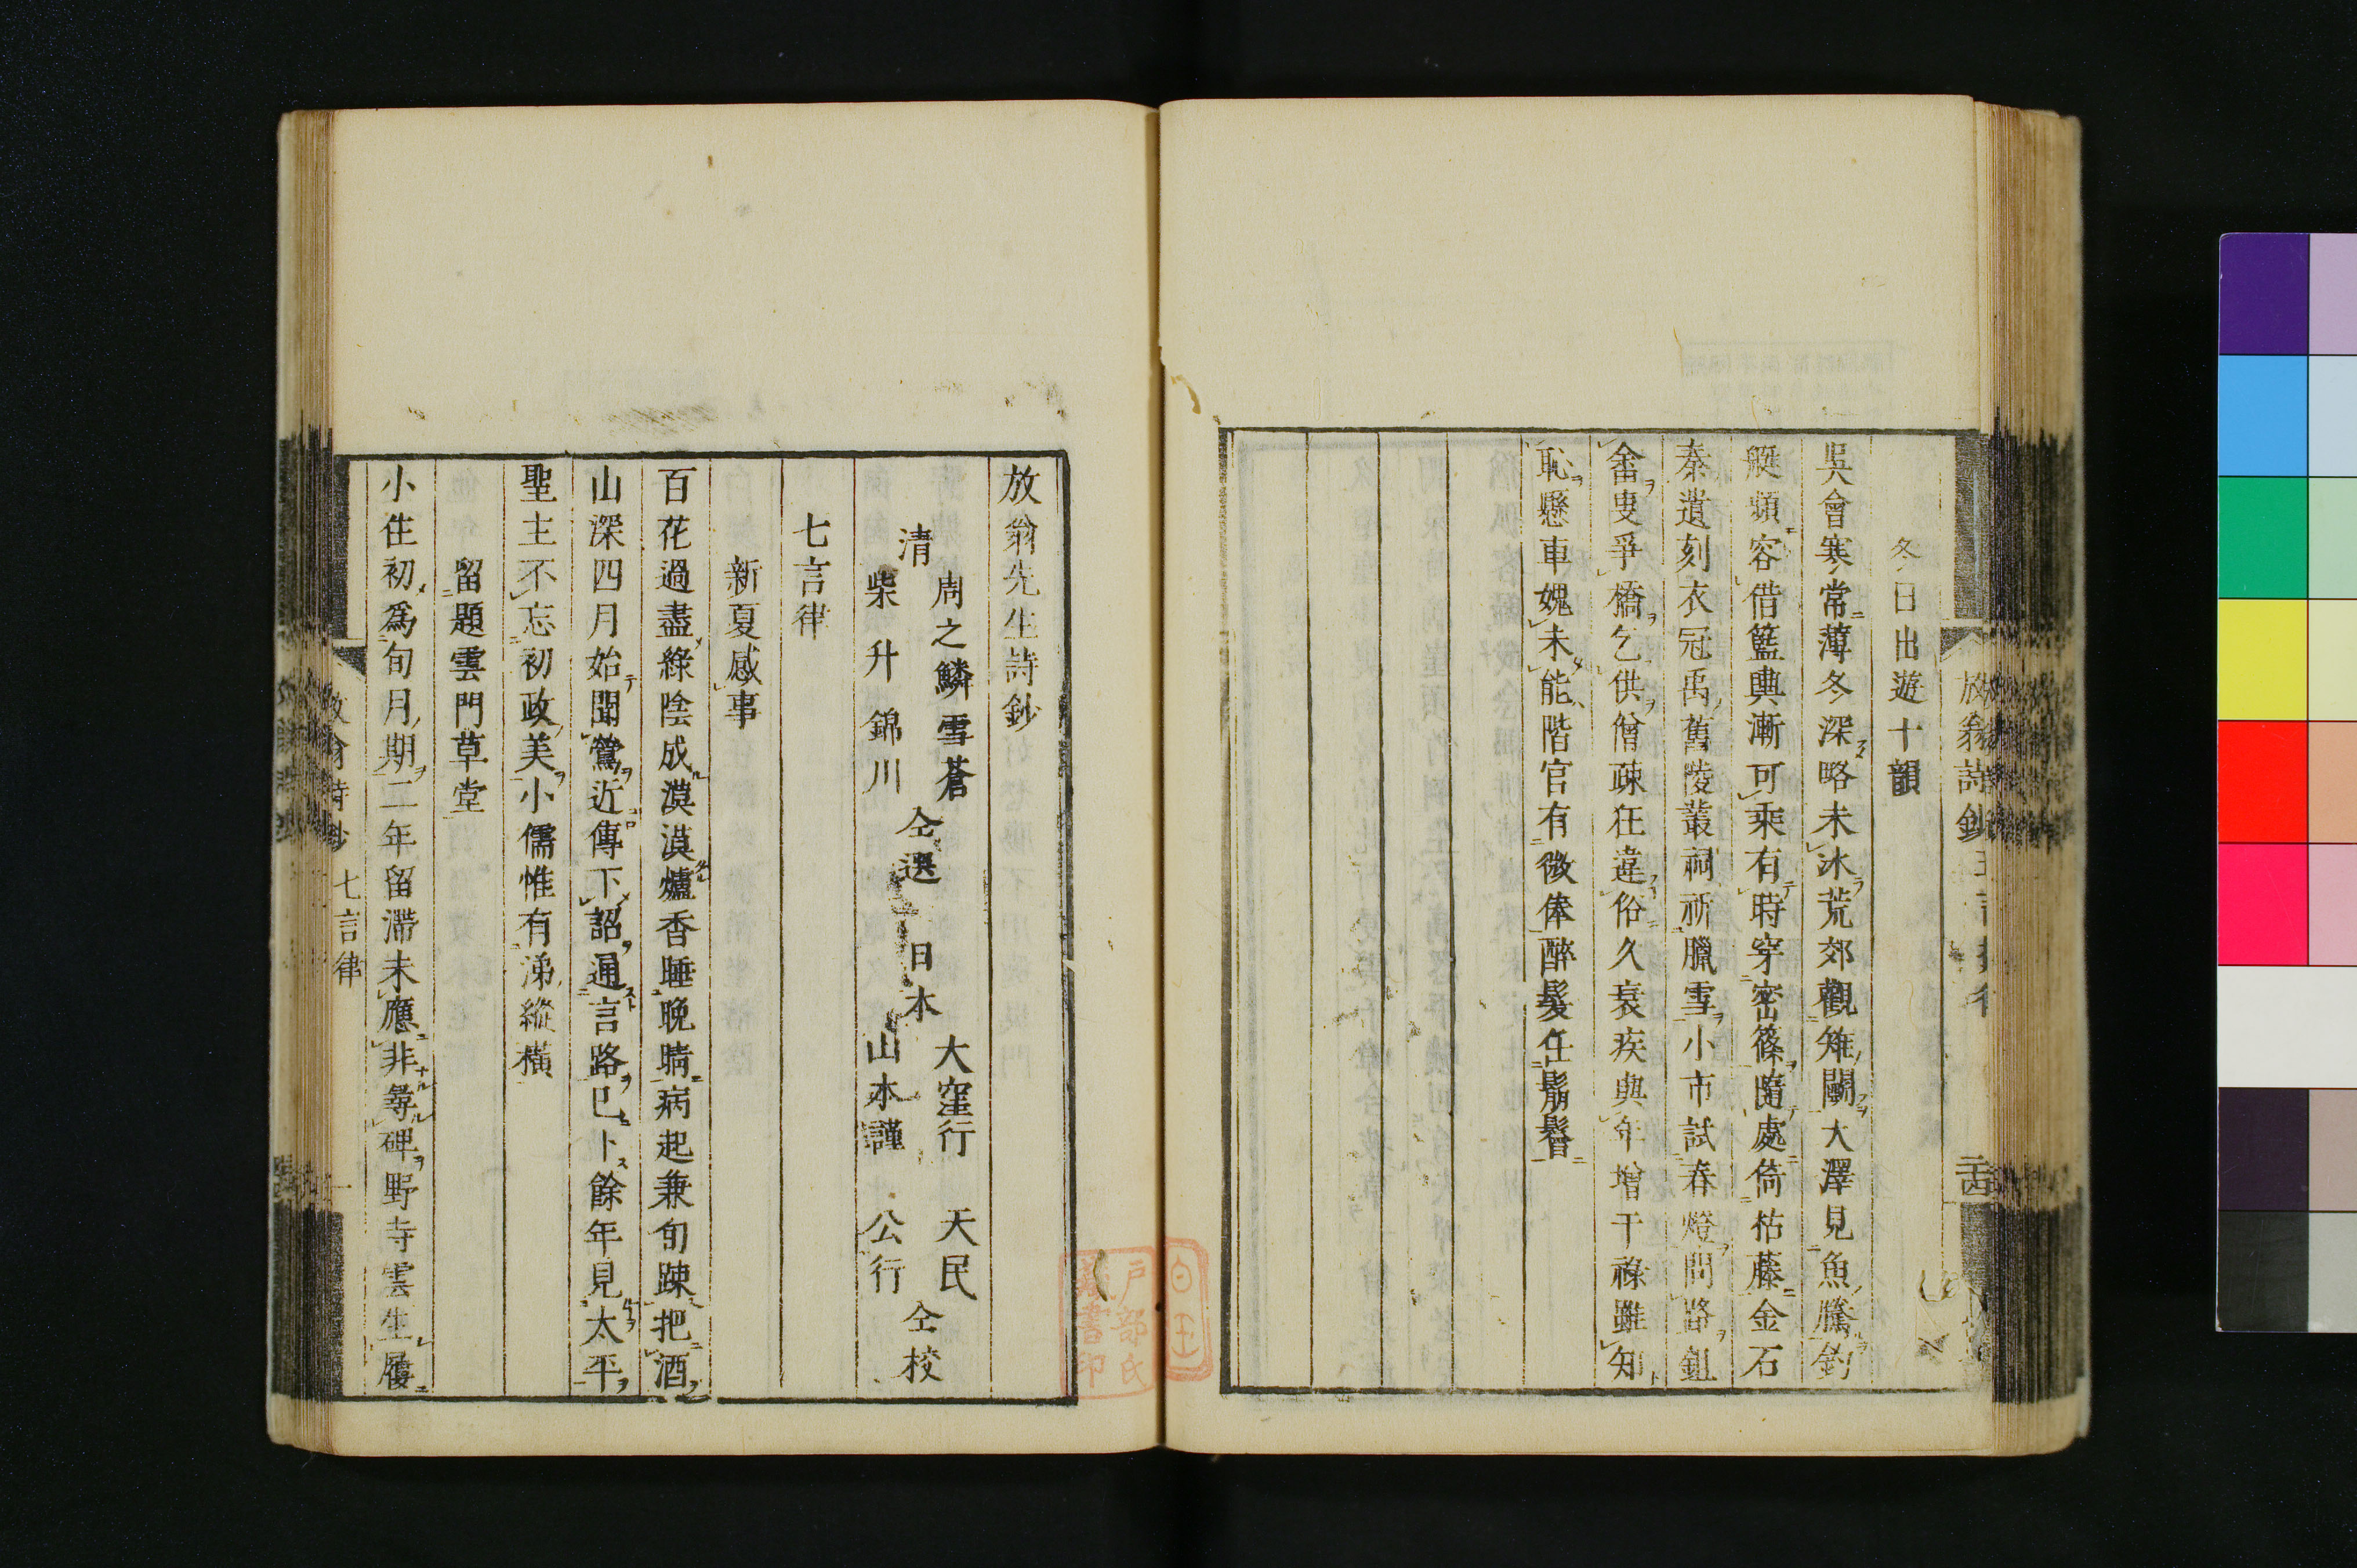 冬日出遊十韻
吳會寒常薄冬深略未冰荒郊觀雉鬬大澤見魚騰釣
艇頻容借籃輿漸可乘有時穿密篠隨處倚枯藤金石
秦遺刻衣冠禹舊陵叢祠祈臘雪小市試春燈問路鉏
畬叟爭橋乞供僧疎狂違俗久衰疾與年增干祿雖知
恥懸車媿未能階官有微俸醉髮任鬅鬙
放翁先生詩鈔
清
周之鱗雪蒼
柴升錦川
仝選
日本
大窪行 天民
山本謹 公行
仝校
七言律
新夏感事
百花過盡綠陰成漠漠爐香睡晚晴病起兼旬踈把酒
山深四月始聞鶯近傳下詔通言路已卜餘年見太平
聖主不忘初政美小儒惟有涕縱橫
留題雲門草堂
小住初爲旬月期二年留滯未應非尋碑野寺雲生屨
七言律